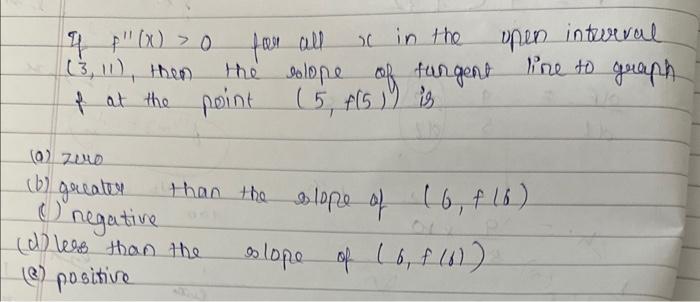 If f''(x) > 0 for all x in the open interval
(3,11), then the slope of tangent line to graph
f at the point (5, f(5)) is
(a) zero
(b) greater than the slope of (6, f(6)
(c) negative
(d) less than the slope of (6, f(6))
(e) positive